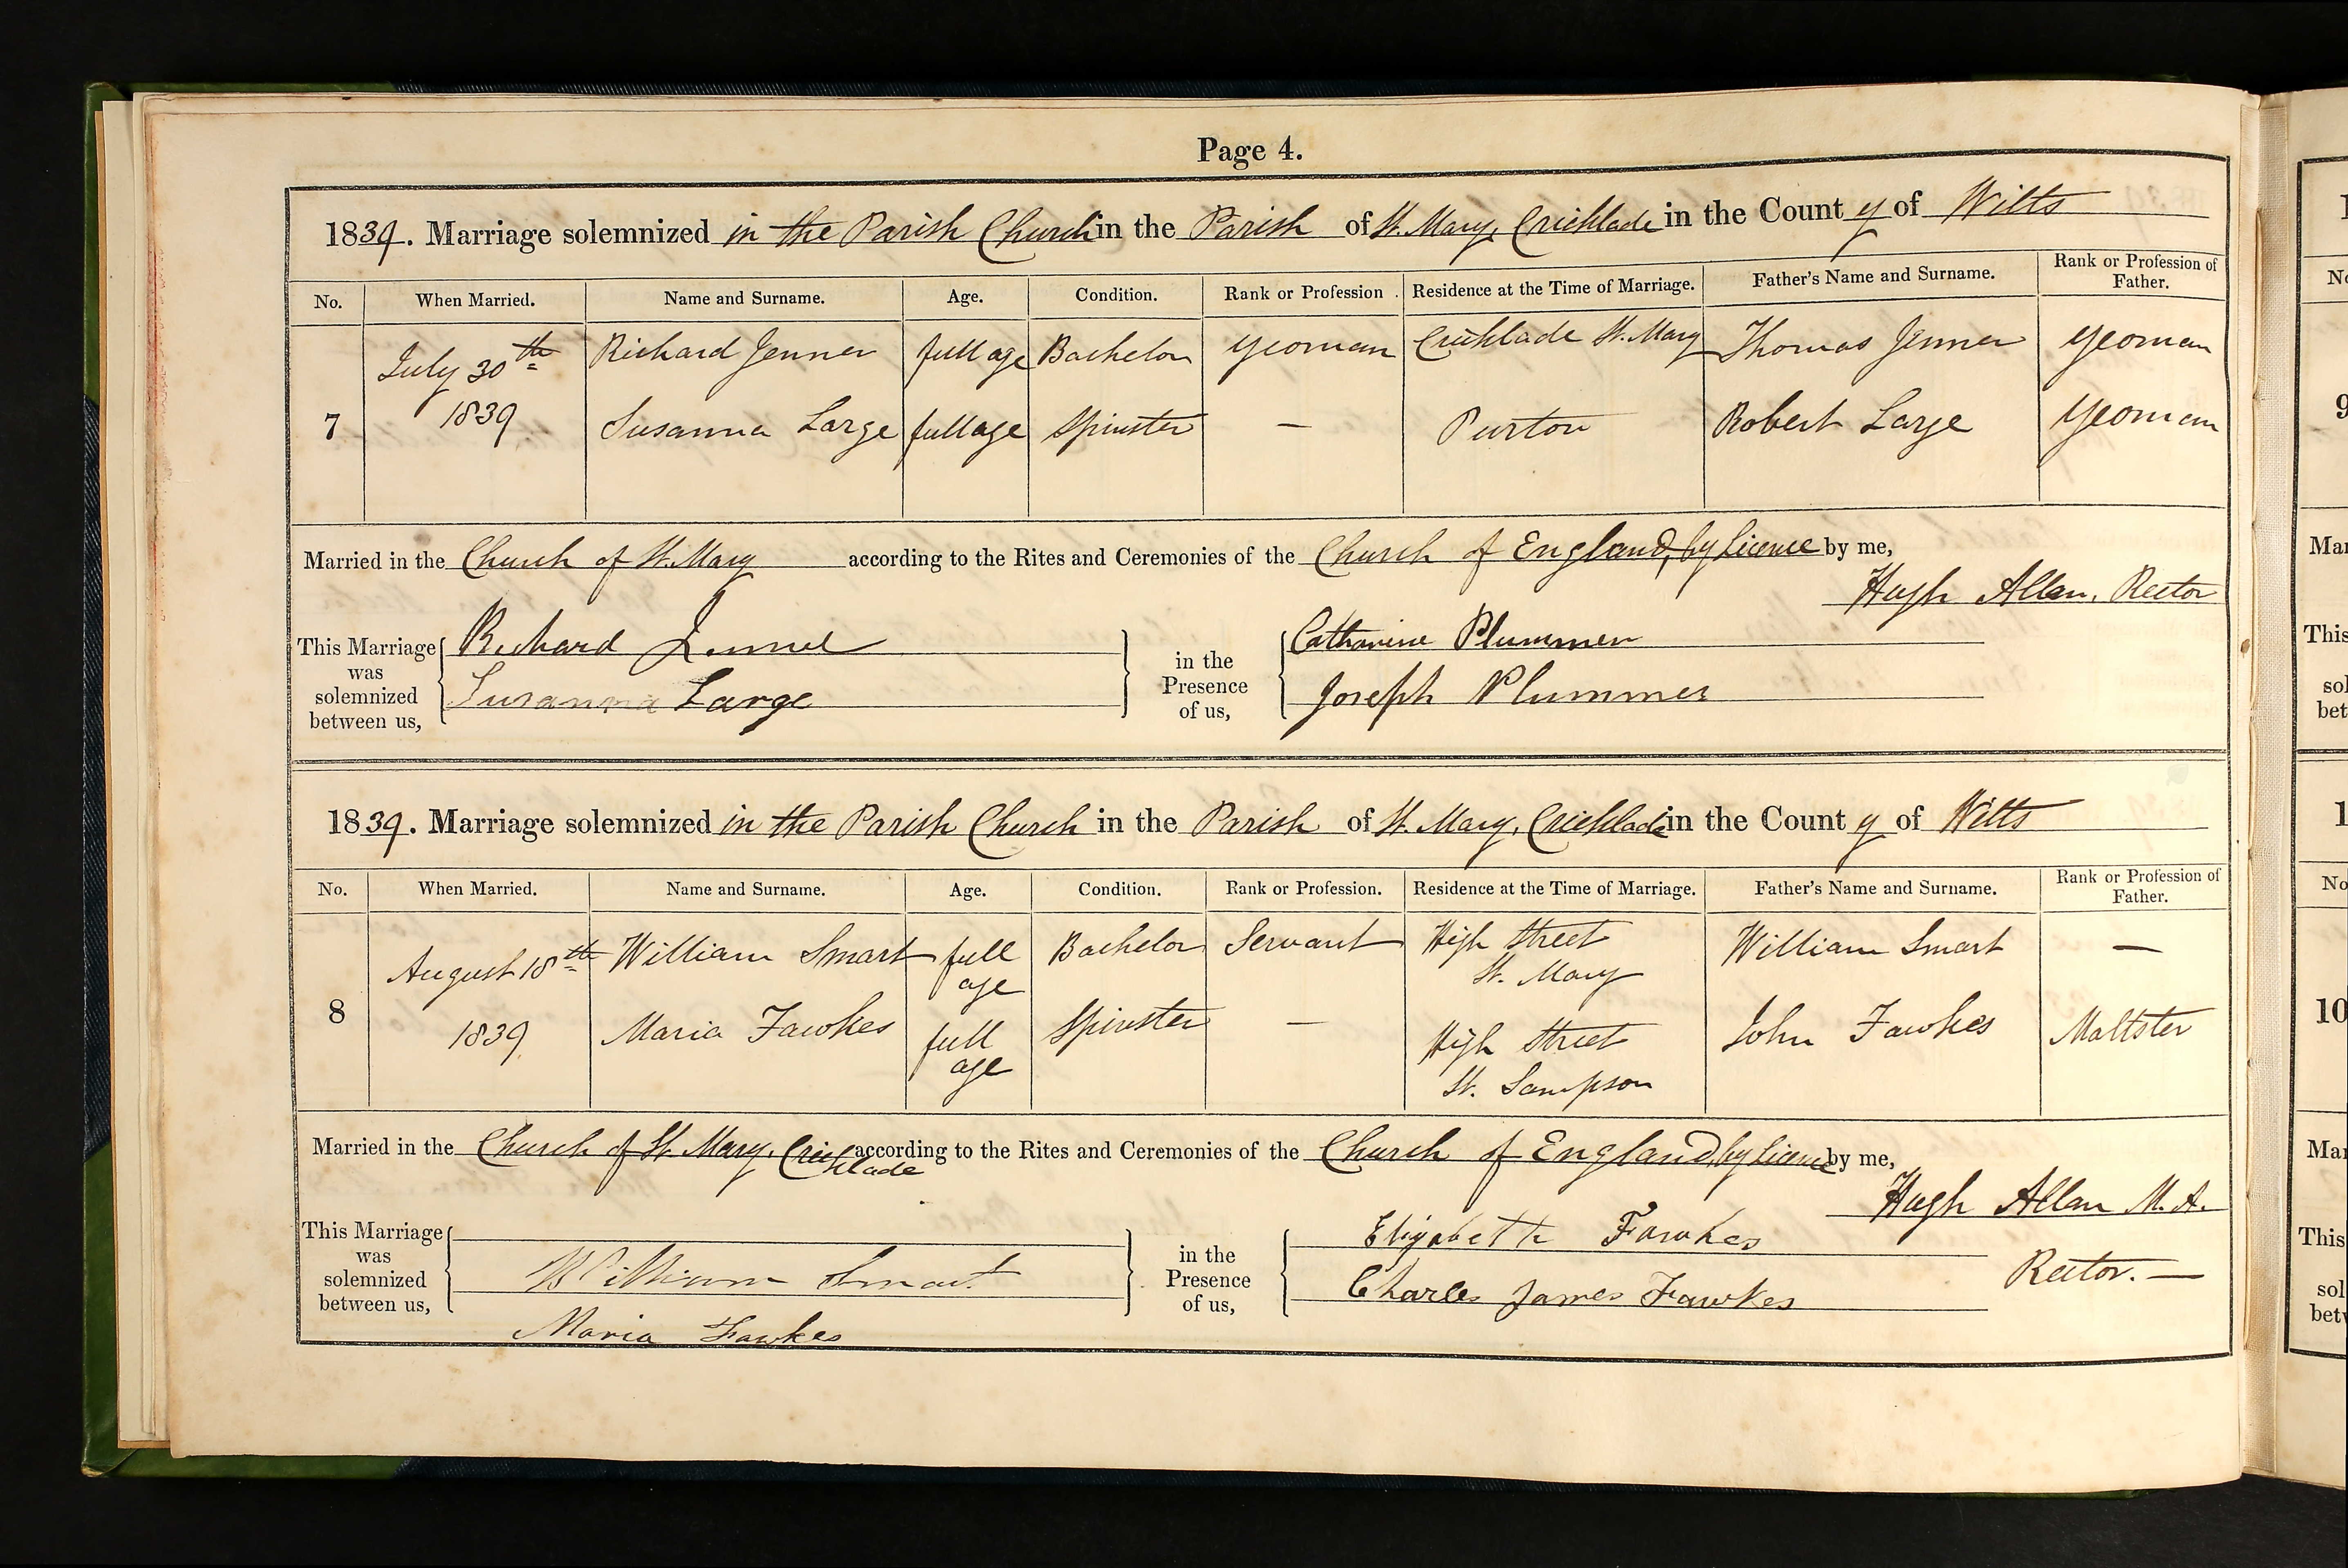 Page 4.
1839. Marriage solemnized in the Parish Church in the Parish of St. Mary, Cricklade in the County of Wilts
No. When Married. Name and Surname. Age. Condition. Rank or Profession. Residence at the Time of Marriage. Father's Name and Surname. Rank or Profession of Father.
7 July 30th 1839 Richard Jenner full age Bachelor Yeoman Cricklade St. Mary Thomas Jenner Yeoman
Susanna Large full age Spinster — Purton Robert Large Yeoman
Married in the Church of St. Mary according to the Rites and Ceremonies of the Church of England, by Licence by me,
Hugh Allan, Rector
This Marriage was solemnized between us, Richard Jenner in the Presence of us, Catharine Plummer
Susanna Large Joseph Plummer
1839. Marriage solemnized in the Parish Church in the Parish of St. Mary, Cricklade in the County of Wilts
No. When Married. Name and Surname. Age. Condition. Rank or Profession. Residence at the Time of Marriage. Father's Name and Surname. Rank or Profession of Father.
8 August 18th 1839 William Smart full age Bachelor Servant High Street St. Mary William Smart —
Maria Fawkes full age Spinster — High Street St. Sampson John Fawkes Maltster
Married in the Church of St. Mary, Cricklade according to the Rites and Ceremonies of the Church of England, by Licence by me,
Hugh Allan M.A.
Rector. —
This Marriage was solemnized between us, William Smart in the Presence of us, Elizabeth Fawkes
Maria Fawkes Charles James Fawkes